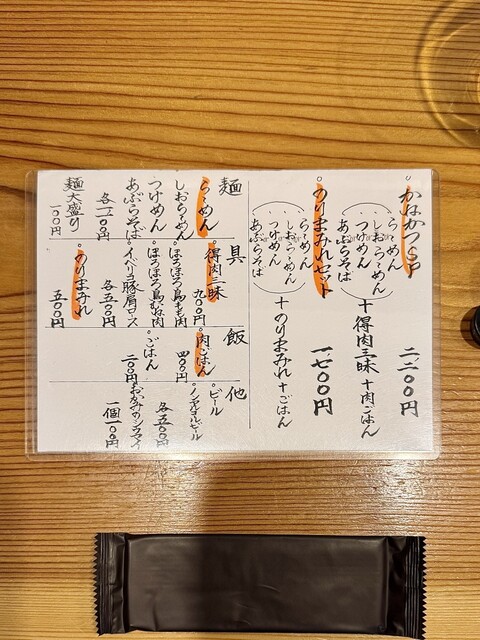 かなかつSP
らーめん
しおらーめん
つけめん
あぶらそば
+ 得肉三昧 + 肉ごはん
二二〇〇円
のりまみれセット
らーめん
しおらーめん
つけめん
あぶらそば
+ のりまみれ + ごはん
一七〇〇円
麺
らーめん
しおらーめん
つけめん
あぶらそば
麺大盛り
一〇〇円
具
得肉三昧
九〇〇円
ほろほろ鳥もも肉
ほろほろ鳥むね肉
イベリコ豚肩ロース
各五〇〇円
のりまみれ
五〇〇円
飯
肉ごはん
四〇〇円
ごはん
二〇〇円
他
ビール
ノンアルコールビール
各五〇〇円
一個一〇〇円